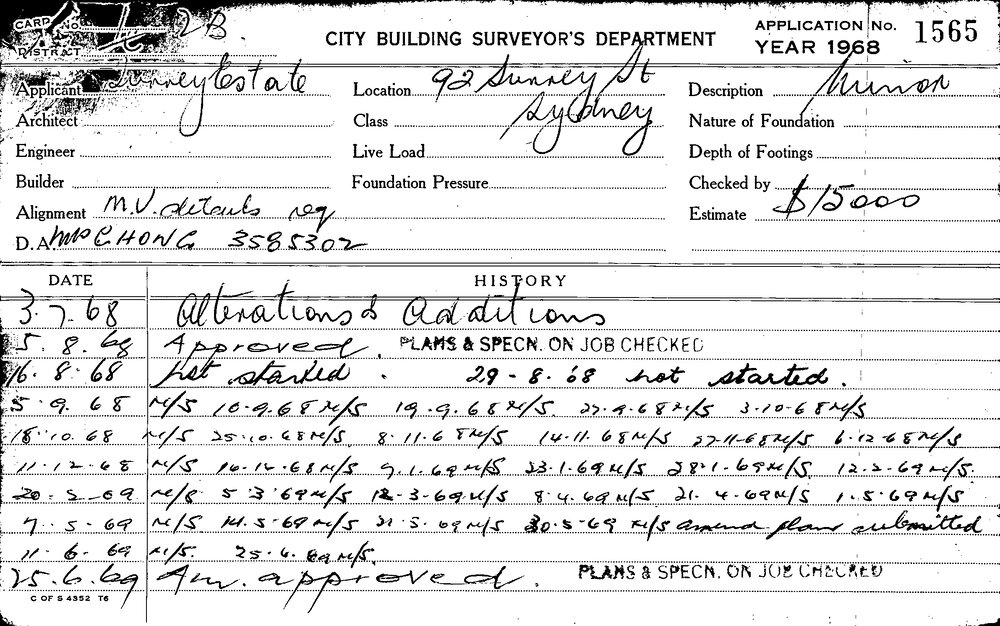 CARD No. 2B.
DISTRICT
CITY BUILDING SURVEYOR'S DEPARTMENT
APPLICATION No. 1565
YEAR 1968
Applicant Surrey Estate Location 92 Surrey St Description Minor
Architect Class Sydney Nature of Foundation
Engineer Live Load Depth of Footings
Builder Foundation Pressure Checked by
Alignment M.V. details req Estimate $15000
D.A. CHONG 3585302
DATE HISTORY
3.7.68 Alterations & Additions
5.8.68 Approved. PLANS & SPECN. ON JOB CHECKED
16.8.68 not started. 29-8.68 not started.
5.9.68 N/S 10-9.68 N/S 19.9.68 N/S 27.9.68 N/S 3-10-68 N/S
18.10.68 N/S 25.10.68 N/S 8.11.68 N/S 14.11.68 N/S 27.11.68 N/S 6.12.68 N/S
11.12.68 N/S 16.12.68 N/S 9.1.69 N/S 23.1.69 N/S 28.1.69 N/S 12.2.69 N/S.
20.2.69 N/S 5.3.69 N/S 12.3.69 N/S 8.4.69 N/S 21.4.69 N/S 1.5.69 N/S
7.5.69 N/S 14.5.69 N/S 21.5.69 N/S 30.5.69 N/S amend plans submitted
11.6.69 N/S. 25.6.69 N/S.
25.6.69 Am. approved. PLANS & SPECN. ON JOB CHECKED
C OF S 4352 T6